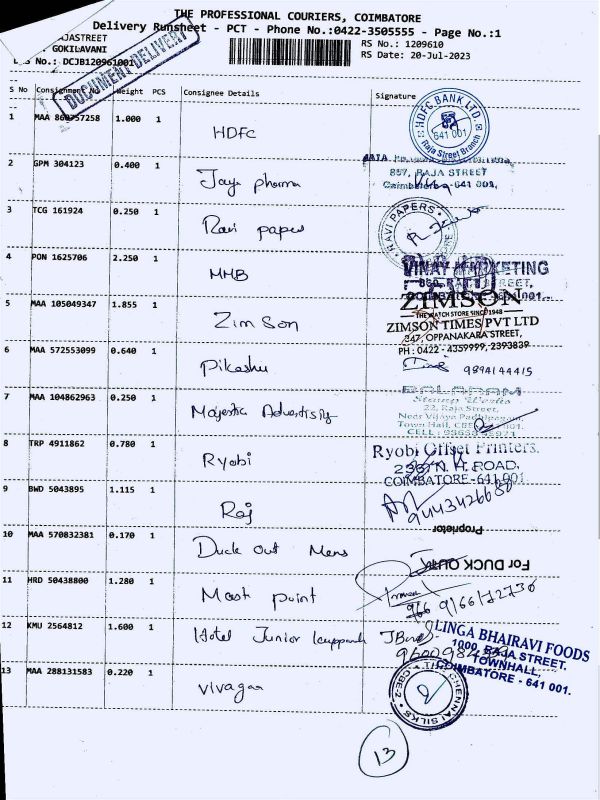 THE PROFESSIONAL COURIERS, COIMBATORE
Delivery Runsheet - PCT - Phone No.:0422-3505555 - Page No.:1
RAJASTREET
GOKILAVANI
RS No.: 1209610
RS Date: 20-Jul-2023
No.: DCJB120961001
DOCUMENT DELIVERY
S No Consignment No Weight PCS Consignee Details Signature
1 MAA 860757258 1.000 1 HDFC
HDFC BANK LTD.
641 001
Raja Street Branch
2 GPM 304123 0.400 1 Jaya pharma
857, RAJA STREET
Coimbatore-641 001.
3 TCG 161924 0.250 1 Ravi papers
RAVI PAPERS
4 PON 1625706 2.250 1 MMB
VINAY MARKETING
5 MAA 105049347 1.855 1 Zimson
ZIMSON
THE WATCH STORE SINCE 1948
ZIMSON TIMES PVT LTD
347, OPPANAKARA STREET,
PH : 0422 - 4359999, 2393839
6 MAA 572553099 0.640 1 Pikashu
9894144415
7 MAA 104862963 0.250 1 Majestic Advertising
BALARAM
Stamp Works
22, Raja Street,
Near Vijaya Padhippagam
8 TRP 4911862 0.780 1 Ryobi
Ryobi Offset Printers.
236, N. H. ROAD,
COIMBATORE-641 001
9 BWD 5043895 1.115 1 Raj
9443426680
Proprietor
10 MAA 570832381 0.170 1 Duck Out Mens
For DUCK OUT
11 HRD 50438800 1.280 1 Mast point
12 KMU 2564812 1.600 1 Hotel Junior
LINGA BHAIRAVI FOODS
1000, RAJA STREET.
TOWNHALL,
COIMBATORE - 641 001.
13 MAA 288131583 0.220 1 Vivagaa
THE CHENNAI SILKS
CBE-2
13